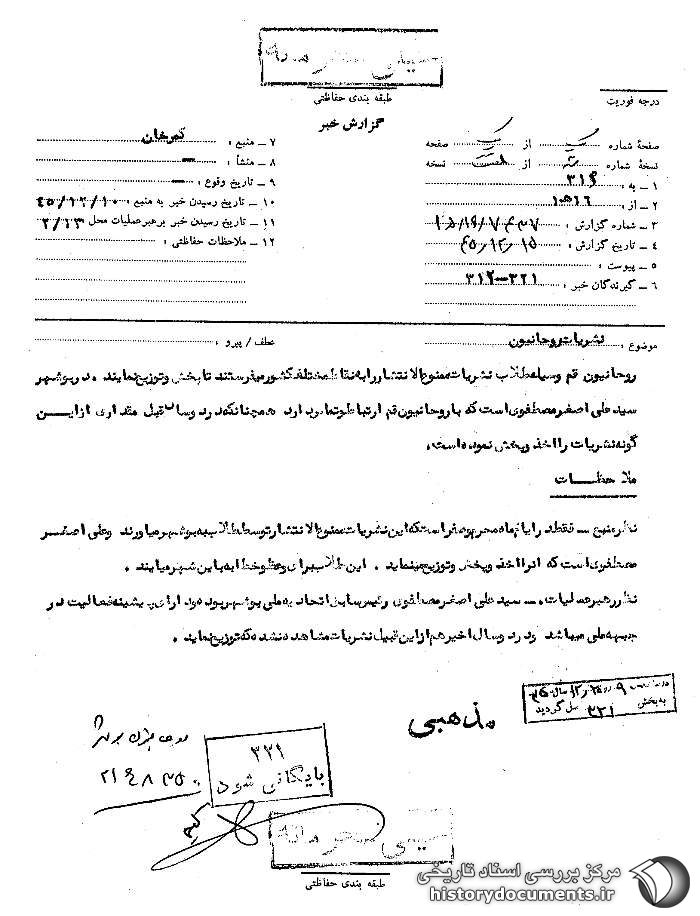 خیلی محرمانه
طبقه بندی حفاظتی
درجه فوریت
گزارش خبر
صفحهٔ شماره یک از یک صفحه
نسخهٔ شماره سه از نسخه
۱ ــ به : ۳۱۶
۲ ــ از : ۱۵ه۱
۳ ــ شماره گزارش :
۴ ــ تاریخ گزارش : ۴۵٫۱۲٫۱۵
۵ ــ پیوست :
۶ ــ گیرندگان خبر : ۳۲۱-۳۱۲
۷ ــ منبع : گمرخان
۸ ــ منشأ : ــ
۹ ــ تاریخ وقوع : ــ
۱۰ ــ تاریخ رسیدن خبر به منبع : ۴۵/۱۲/۱۰
۱۱ ــ تاریخ رسیدن خبر برهبر عملیات محل ۱۳/۲
۱۲ ــ ملاحظات حفاظتی :
موضوع : نشریات روحانیون
عطف / پیرو :
روحانیون قم وسیله طلاب نشریات ممنوع الانتشار را به نقاط مختلف کشور میفرستند تا پخش و توزیع نمایند . در بوشهر
سید علی اصغر مصطفوی است که با روحانیون قم ارتباط و تماس دارد همچنانکه در دو سال قبل مقداری از این
گونه نشریات را اخذ و پخش نموده است.
ملاحظات
نظر منبع ــ فقط در ایام ماه محرم و صفر است که این نشریات ممنوع الانتشار توسط طلاب به بوشهر میاورند و علی اصغر
مصطفوی است که انرا اخذ و پخش و توزیع مینماید . این طلاب برای وعظ و خطابه باین شهر میایند .
نظر رهبر عملیات ــ سید علی اصغر مصطفوی رئیس سابق اتحاد به ملی بوشهر بوده و دارای پیشینه فعالیت در
جبهه ملی میباشد و در دو سال اخیر هم از این قبیل نشریات مشاهده نشده که توزیع نماید .
به بخش ۳۲۱ گردید
مذهبی
۳۲۱
بایگانی شود
خیلی محرمانه
طبقه بندی حفاظتی
مرکز بررسی اسناد تاریخی
historydocuments.ir